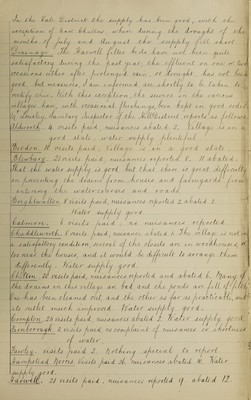 In the Vale District the supply has been good, with the
exception of East Challow, when during the droughts of the
months of July and August the supply fell short
Drainage. The Farwell filter beds have not been quite
satisfactory during the past year, the effluent on one or two
occasions either after prolonged rain, or drought, has not been
good, but measures, I am informed are shortly to be taken to
rectify this. With this exception, the sewers in the various
villages have, with occasional flushings, been kept in good order.
Mr Lousley, Sanitary Inspector of the Hill District reports as follows.
Aldworth. 4 visits paid, nuisances abated 2. Village is in a
good state, water supply plentiful.
Beedon. 10 visits paid. Village is in a good state
Blewbury. 25 visits paid, nuisances reported 8. 11 abated.
That the water supply is good, but that there is great difficulty
in preventing the drains from houses and farmyards from
entering the watercourses and roads
Brightwalton 8 visits paid, nuisances reported 2 abated 2.
Water supply good
Catmore. 6 visits paid, no nuisances reported
Chaddleworth. 8 visits paid, nuisances abated 2. The village is not in
a satisfactory condition, several of the closets are in woodhouses, or
too near the houses, and it would be difficult to arrange them
differently. Water supply good.
Chilton. 20 visits paid, nuisances reported and abated 6. Many of
the drains in this village are bad and the ponds are full of filth
has been cleaned out and the other as far as practicable, and
its outlet much improved. Water supply good.
Compton, 20 visits paid, nuisances abated 2. Water supply good.
Farnborough, 2 visits paid, no complaint of nuisances or shortness
of water.
Fawley. visits paid 2. Nothing special to report
Hampstead Norris, visits paid 26, nuisances abated 10. Water
supply good.
Farwell, 21 visits paid, nuisances reported 19 abated 12.